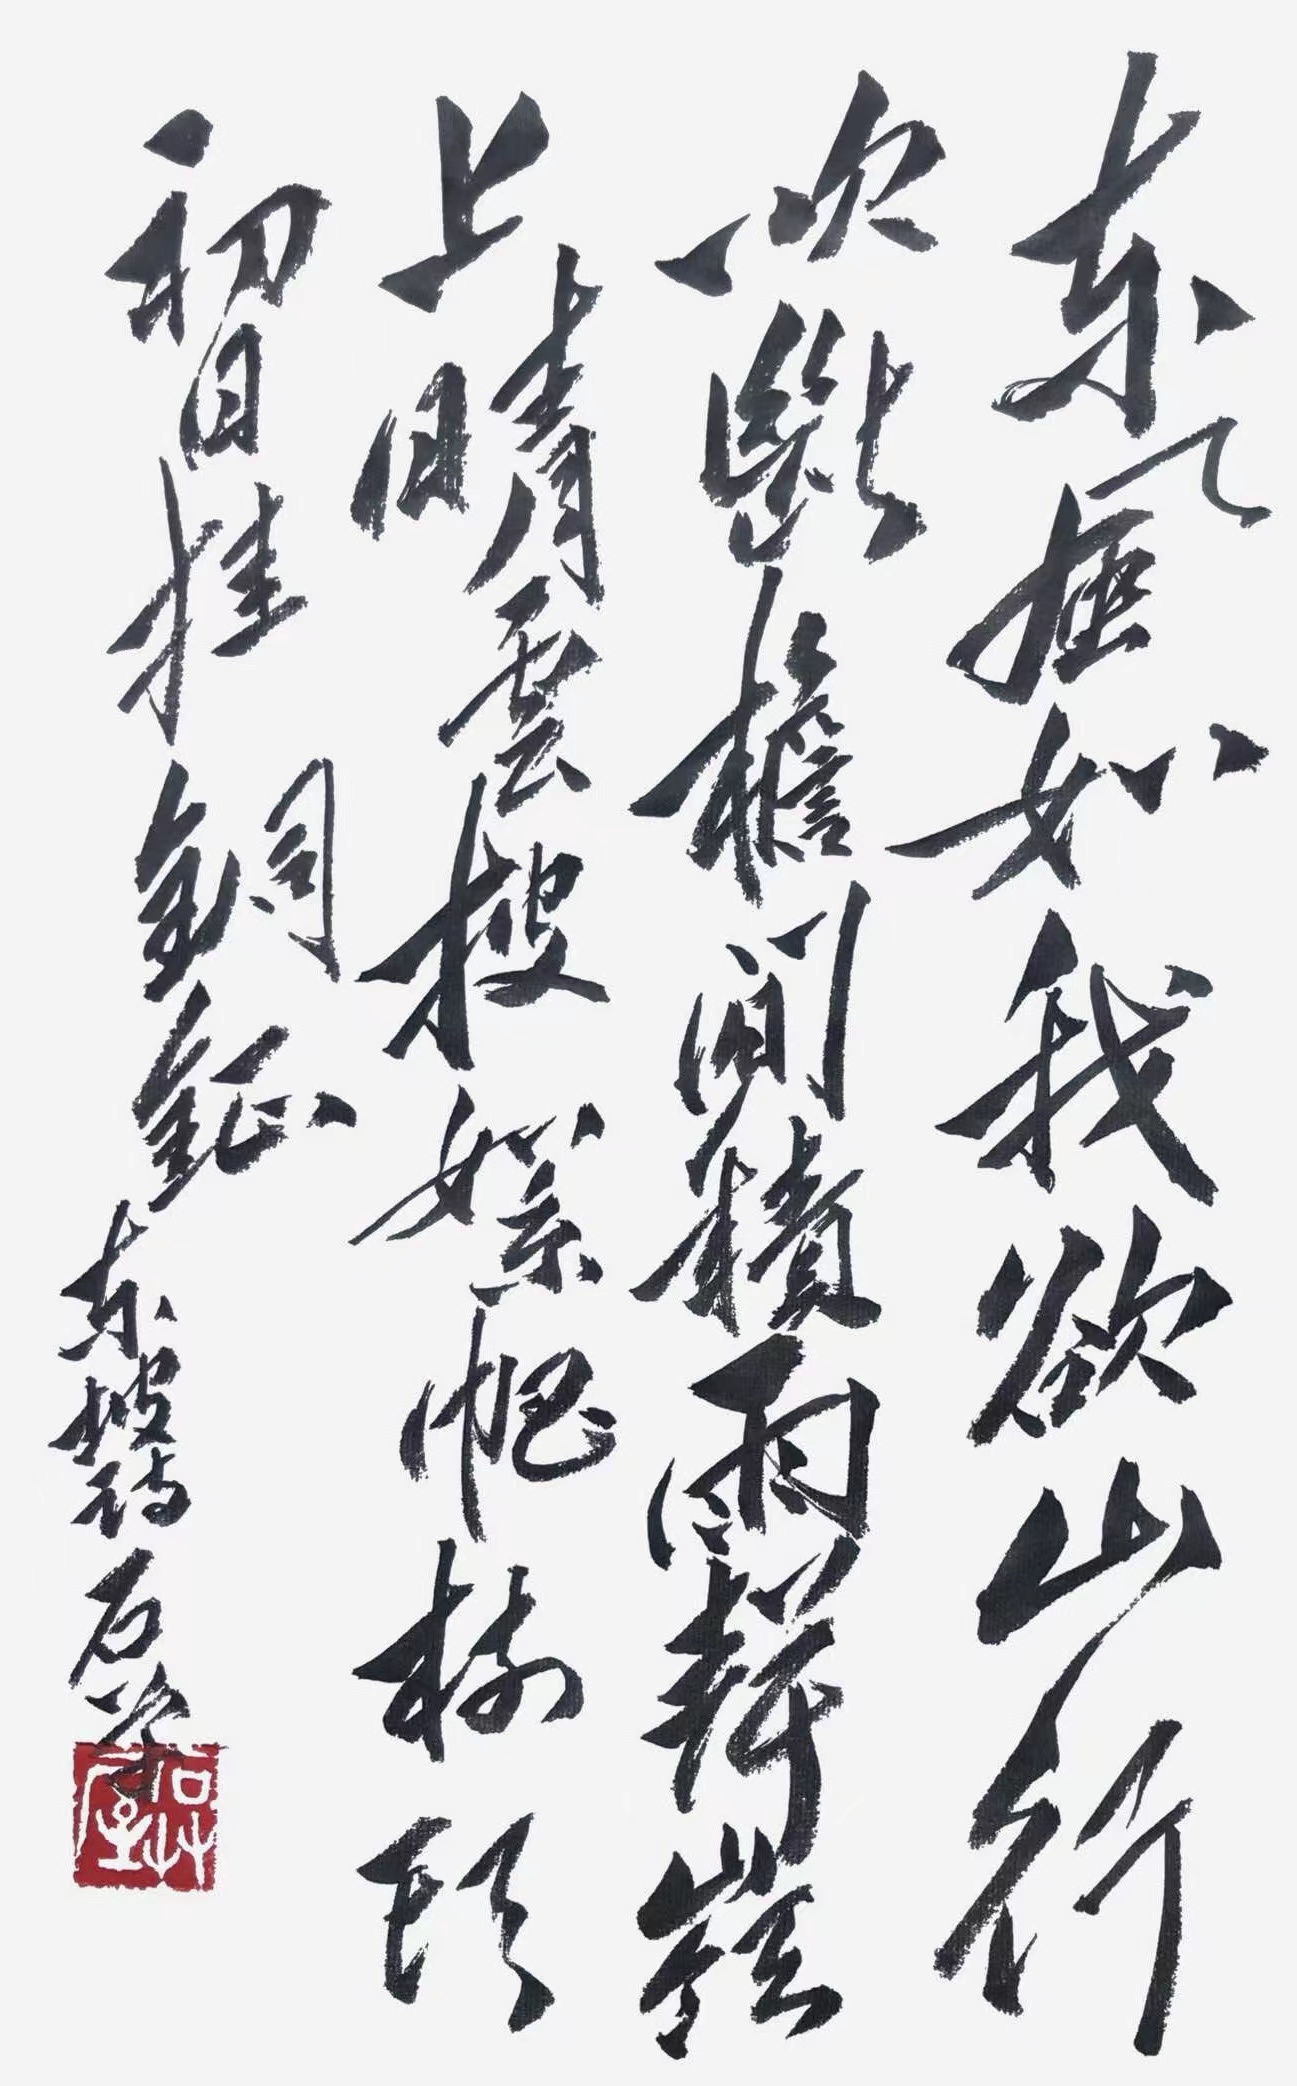 東風知我欲山行
吹斷檐間積雨聲嶺
上晴雲披絮帽樹頭
初日挂銅鉦 東坡詩 石